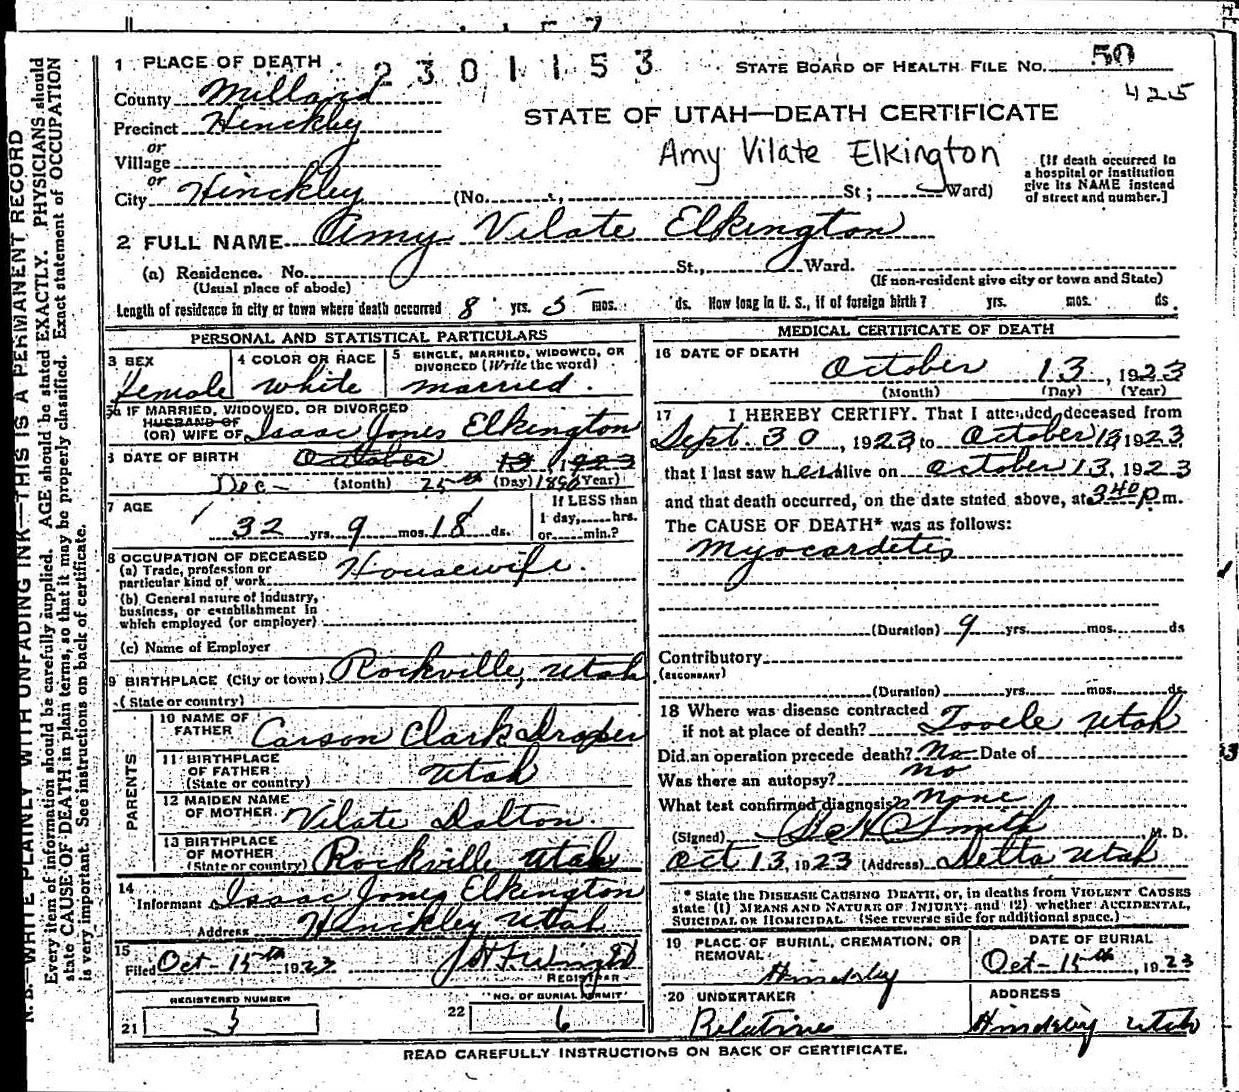 1 PLACE OF DEATH 2301153 STATE BOARD OF HEALTH FILE NO. 50
425
County Millard
Precinct Hinckley
STATE OF UTAH—DEATH CERTIFICATE
or
Village
Amy Vilate Elkington
or
City Hinckley (No. , St; Ward)
[If death occurred in
a hospital or institution
give its NAME instead
of street and number.]
2 FULL NAME Amy Vilate Elkington
(a) Residence. No. St., Ward.
(Usual place of abode) (If non-resident give city or town and State)
Length of residence in city or town where death occurred 8 yrs. 5 mos. ds. How long in U. S., if of foreign birth? yrs. mos. ds.
PERSONAL AND STATISTICAL PARTICULARS
3 SEX
female
4 COLOR OR RACE
white
5 SINGLE, MARRIED, WIDOWED, OR
DIVORCED (Write the word)
married.
5a IF MARRIED, WIDOWED, OR DIVORCED
HUSBAND OF
(OR) WIFE OF Isaac Jones Elkington
6 DATE OF BIRTH October 13 1923
Dec- (Month) 25th (Day) 1890 (Year)
7 AGE
32 yrs. 9 mos. 18 ds.
If LESS than
1 day, hrs.
or min.?
8 OCCUPATION OF DECEASED
(a) Trade, profession or
particular kind of work Housewife.
(b) General nature of industry,
business, or establishment in
which employed (or employer)
(c) Name of Employer
9 BIRTHPLACE (City or town) Rockville, Utah
(State or country)
PARENTS
10 NAME OF
FATHER Carson Clark Draper
11 BIRTHPLACE
OF FATHER
(State or country) Utah
12 MAIDEN NAME
OF MOTHER Vilate Dalton.
13 BIRTHPLACE
OF MOTHER
(State or country) Rockville Utah
14
Informant Isaac Jones Elkington
Address Hinckley Utah
15
Filed Oct- 15th 1923
REGISTRAR
REGISTERED NUMBER
21 3
NO. OF BURIAL PERMIT
22 6
MEDICAL CERTIFICATE OF DEATH
16 DATE OF DEATH
October 13, 1923
(Month) (Day) (Year)
17 I HEREBY CERTIFY. That I attended deceased from
Sept. 30, 1923 to October 13 1923
that I last saw her alive on October 13, 1923
and that death occurred, on the date stated above, at 3 40 P m.
The CAUSE OF DEATH* was as follows:
Myocardetis
(Duration) 9 yrs. mos. ds
Contributory
(SECONDARY)
(Duration) yrs. mos. ds.
18 Where was disease contracted
if not at place of death? Tooele Utah
Did an operation precede death? No Date of
Was there an autopsy? no
What test confirmed diagnosis? None
(Signed) Smith, M. D.
Oct 13, 1923 (Address) Delta Utah
* State the DISEASE CAUSING DEATH, or, in deaths from VIOLENT CAUSES
state (1) MEANS AND NATURE OF INJURY; and (2) whether ACCIDENTAL,
SUICIDAL OR HOMICIDAL. (See reverse side for additional space.)
19 PLACE OF BURIAL, CREMATION, OR
REMOVAL
Hinckley
DATE OF BURIAL
Oct- 15th, 1923
20 UNDERTAKER
Relatives
ADDRESS
Hinckley Utah
READ CAREFULLY INSTRUCTIONS ON BACK OF CERTIFICATE.
N. B.—WRITE PLAINLY WITH UNFADING INK—THIS IS A PERMANENT RECORD
Every item of information should be carefully supplied. AGE should be stated EXACTLY. PHYSICIANS should
state CAUSE OF DEATH in plain terms, so that it may be properly classified. Exact statement of OCCUPATION
is very important. See instructions on back of certificate.